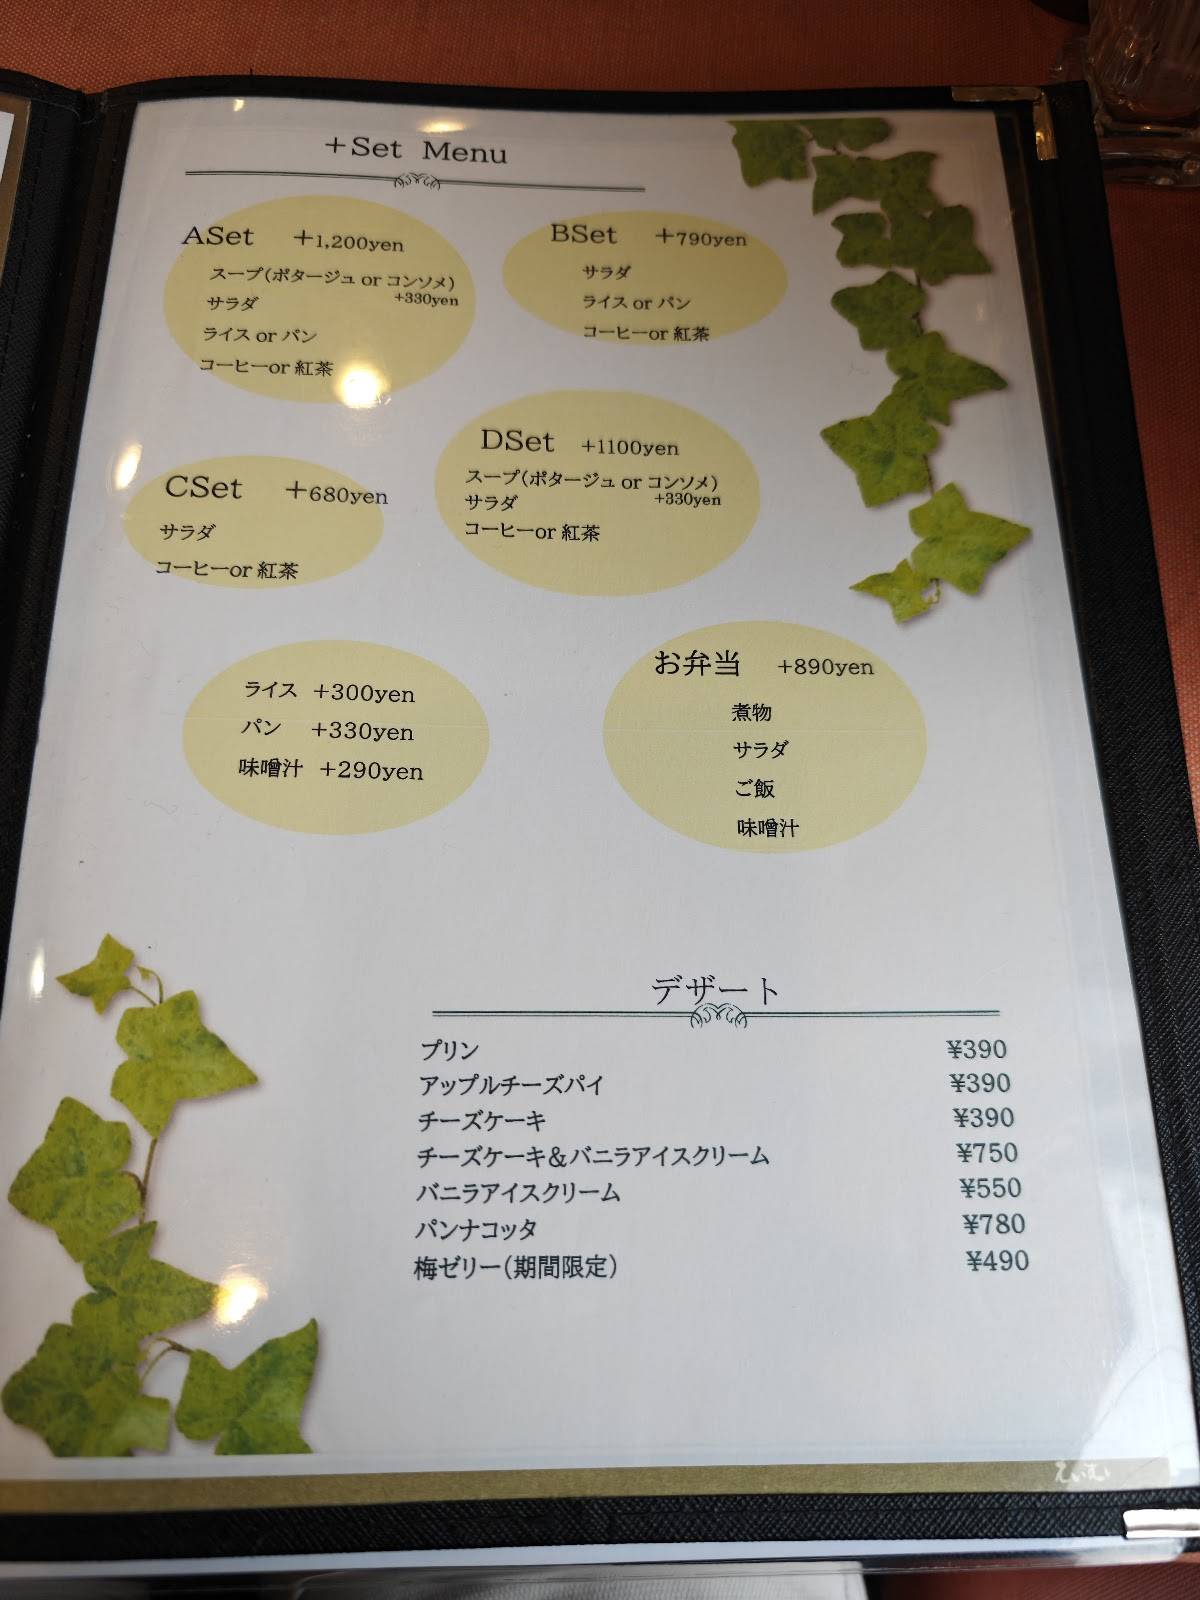 +Set Menu
ASet +1,200yen
スープ(ポタージュ or コンソメ)
サラダ +330yen
ライス or パン
コーヒーor 紅茶
BSet +790yen
サラダ
ライス or パン
コーヒーor 紅茶
CSet +680yen
サラダ
コーヒーor 紅茶
DSet +1100yen
スープ(ポタージュ or コンソメ)
サラダ +330yen
コーヒーor 紅茶
ライス +300yen
パン +330yen
味噌汁 +290yen
お弁当 +890yen
煮物
サラダ
ご飯
味噌汁
デザート
プリン ¥390
アップルチーズパイ ¥390
チーズケーキ ¥390
チーズケーキ&バニラアイスクリーム ¥750
バニラアイスクリーム ¥550
パンナコッタ ¥780
梅ゼリー(期間限定) ¥490
えいむ